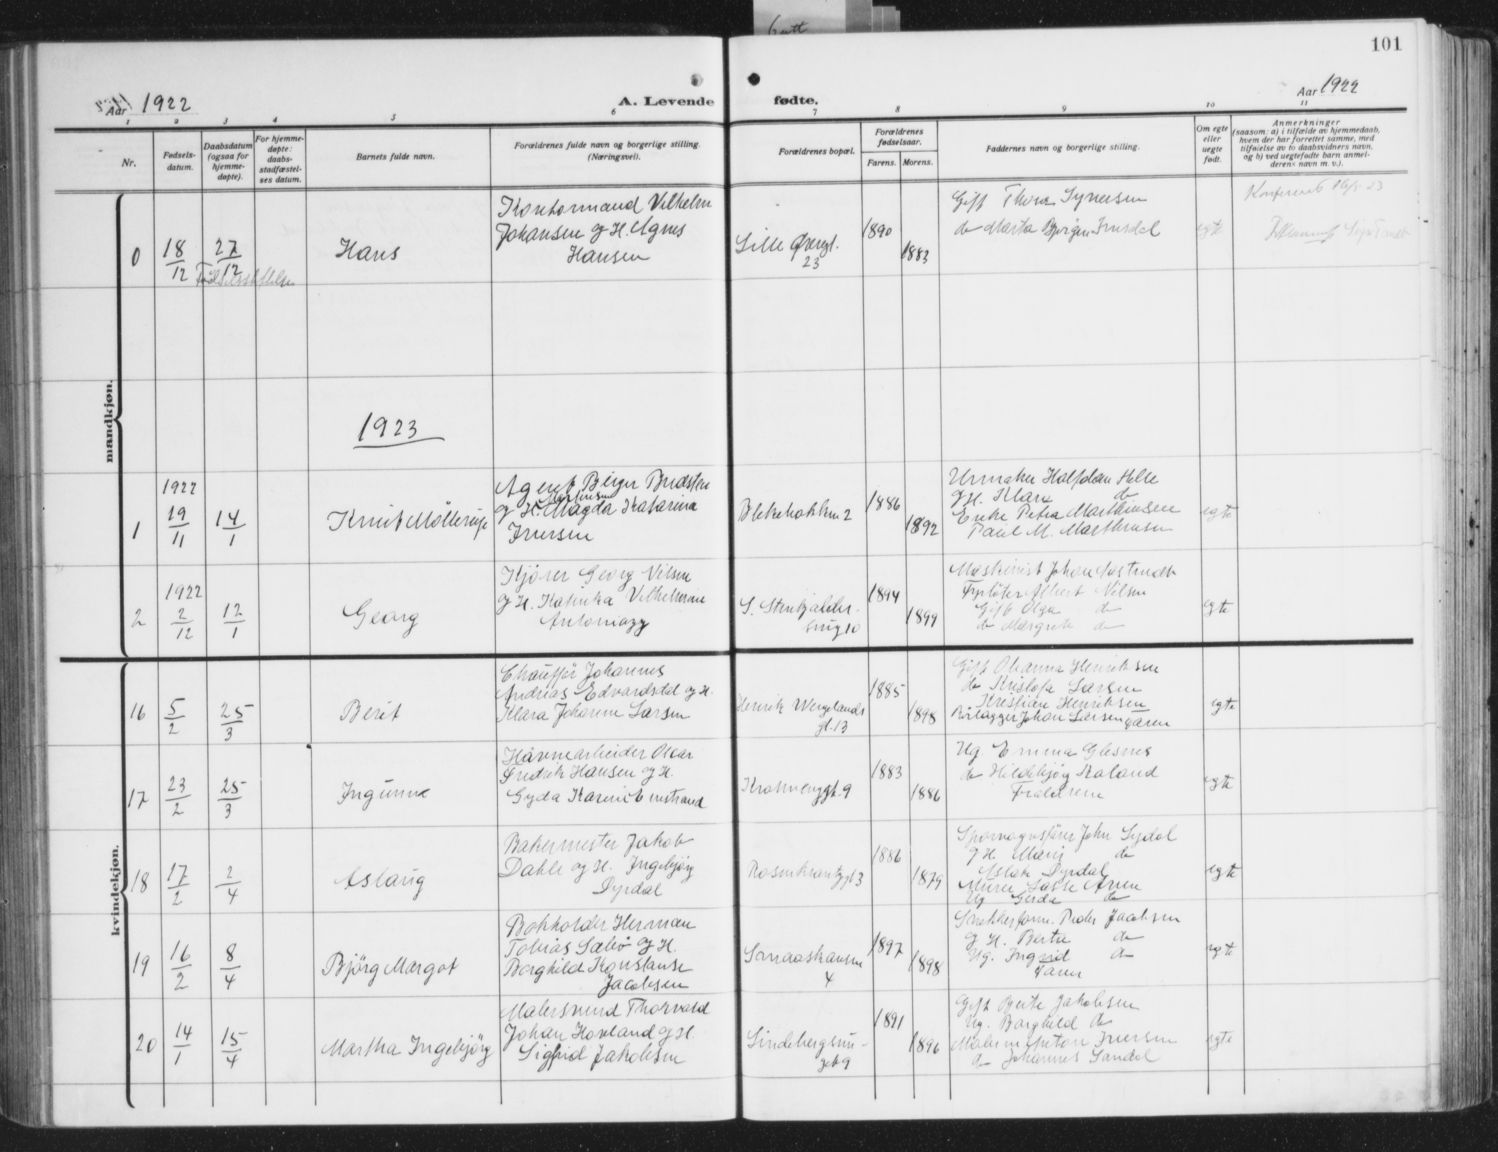 101
Aar 1922
A. Levende fødte.
Aar 1922
1 2 3 4 5 6 7 8 9 10 11
Nr.
Fødsels-
datum.
Daabsdatum
(ogsaa for
hjemme-
døpte).
For hjemme-
døpte:
daabs-
stadfæstel-
ses datum.
Barnets fulde navn.
Forældrenes fulde navn og borgerlige stilling.
(Næringsvei).
Forældrenes bopæl.
Forældrenes
fødselsaar.
Farens. Morens.
Faddernes navn og borgerlige stilling.
Om egte
eller
uegte
født.
Anmerkninger
(saasom: a) i tilfælde av hjemmedaab,
hvem der har forrettet samme, med
tilføielse av to daabsvidners navn,
og b) ved uegtefødte barn anmel-
derens navn m. v.).
mandkjøn.
0
18/12
27/12
Hans
Kontormand Vilhelm
Johansen og H. Agnes
Hansen
Lille Øvregt.
23
1890
1883
Gift Thora Synersen
do Marta
egte
1923
1
1922
19/11
14/1
Knut Møllerup
Agent Birger
og H. Magda Katarina
Iversen
Blekebakken 2
1886
1892
Urmaker Halfdan Helle
og H. Klara do
Enke Petra Marthinsen
Paul M. Marthinsen
egte
2
1922
2/12
12/1
Georg
Kjører Georg Nilsen
og H. Katinka Vilhelmine
S. Stenkjelder-
smug 10
1894
1899
Maskinist Johan
Fyrbøter Albert Nilsen
Gift Olga do
do Margrete do
egte
kvindekjøn.
16
5/2
25/3
Berit
Chauffør Johannes
Andreas Edvardsdal og H.
Klara Johanne Larsen
Henrik Wergelands
gt. 13
1885
1898
Gift Olianna Henriksen
do Kristofa Larsen
Kristian Henriksen
Rørlægger Johan Larsen Faren
egte
17
23/2
25/3
Ingunne
Havnearbeider Oscar
Fredrik Hansen og H.
Gyda
Krohnengt. 9
1883
1886
Ug. Emma Glesnes
do Hildebjørg Raland
Forældrene
egte
18
17/2
2/4
Aslaug
Bakermester Jakob
Dahle og H. Ingebjørg
Dyrdal
Rosenkrantzgt 3
1886
1879
Sporvognsfører John Sydal
og H. Marij do
Aslak Dyrdal
Murer Lasse Arnen
Ug Gerda do
egte
19
16/2
8/4
Bjørg Margot
Bokholder Herman
Tobias Sæbø og H.
Borghild Konstanse
Jacobsen
Sandaskansen
4
1897
1898
Snekkerform. Peder Jacobsen
og H. Berta do
Ug. Ingrid do
Faren
egte
20
14/1
15/4
Martha Ingebjørg
Malersvend Thorvald
Johan Hovland og H.
Sigfrid Jakobsen
Lindebergsmu-
get 9
1891
1896
Gift Berte Jakobsen
Ug. Borghild do
Maleren Anton Iversen
do Johannes Sandal
egte